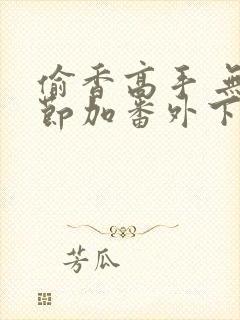 偷香高手 無
節加番外下
芳瓜